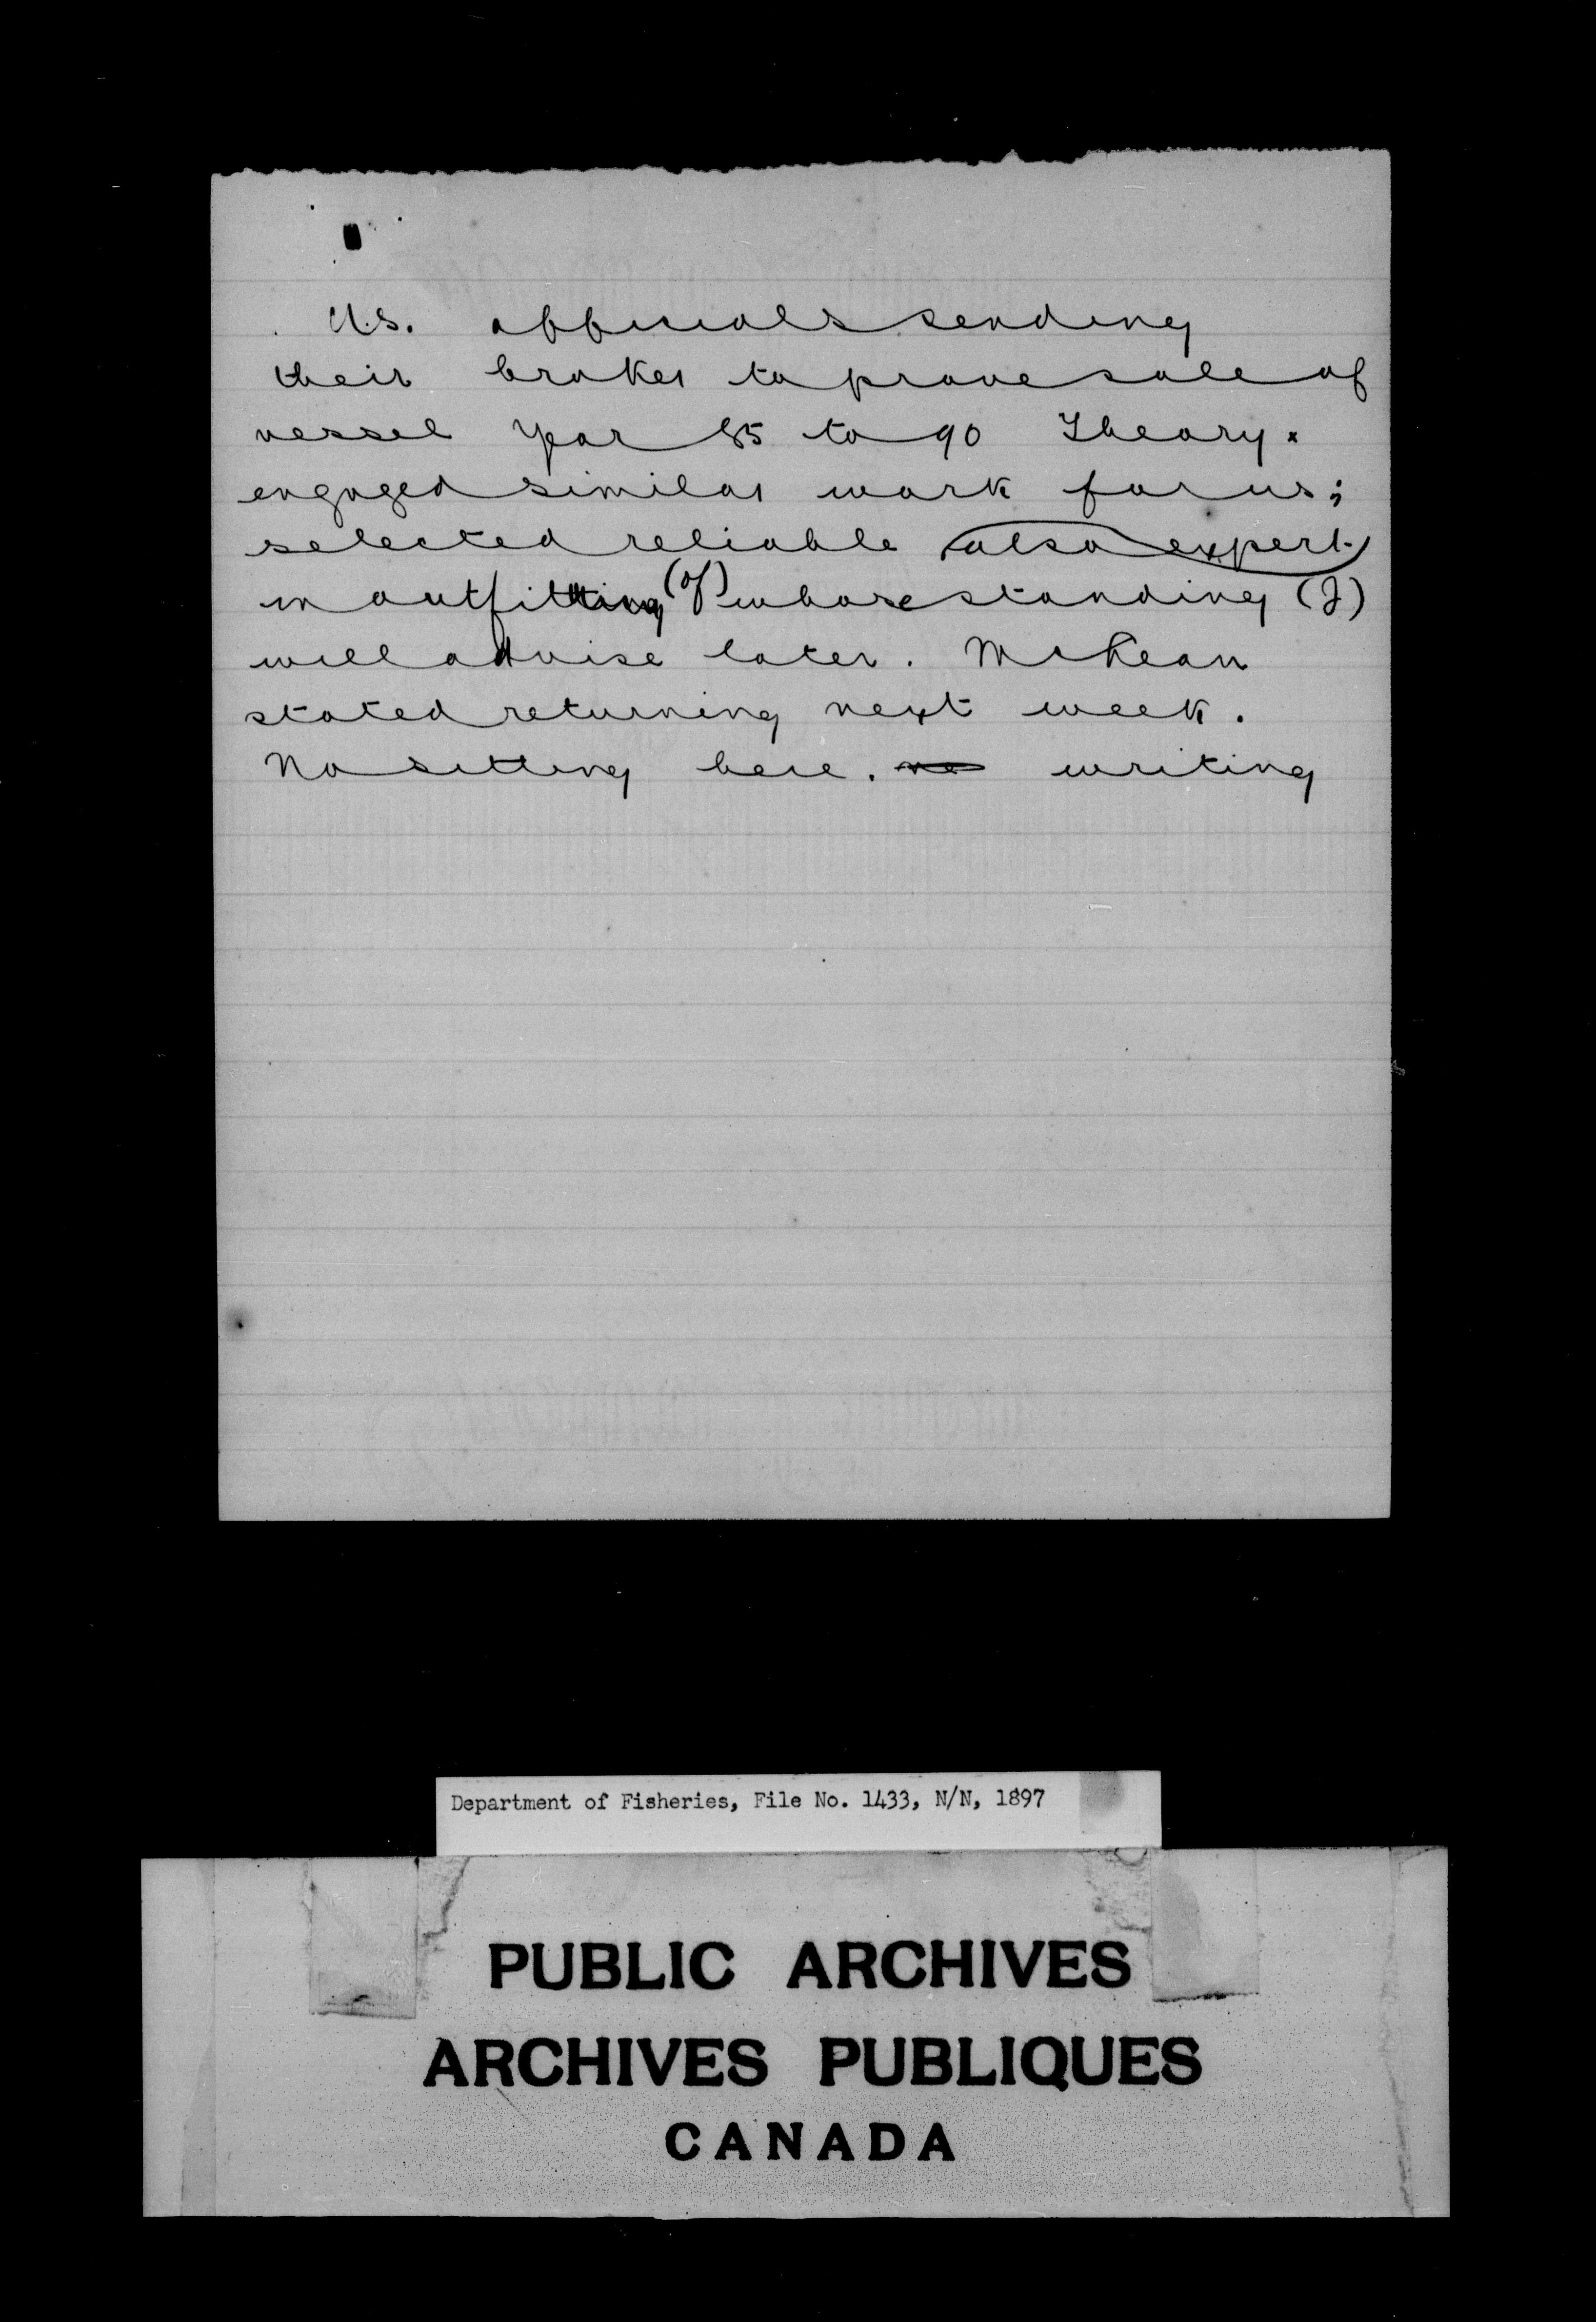 U.S. officials sending
their broker to prove sale of
vessel year 85 to 90 Theory x
engaged similar work for us;
selected reliable also expert
in outfitting (of) whose standing (I)
will advise later. McKean
stated returning next week.
No sitting here. no writing
Department of Fisheries, File No. 1433, N/N, 1897
PUBLIC ARCHIVES
ARCHIVES PUBLIQUES
CANADA